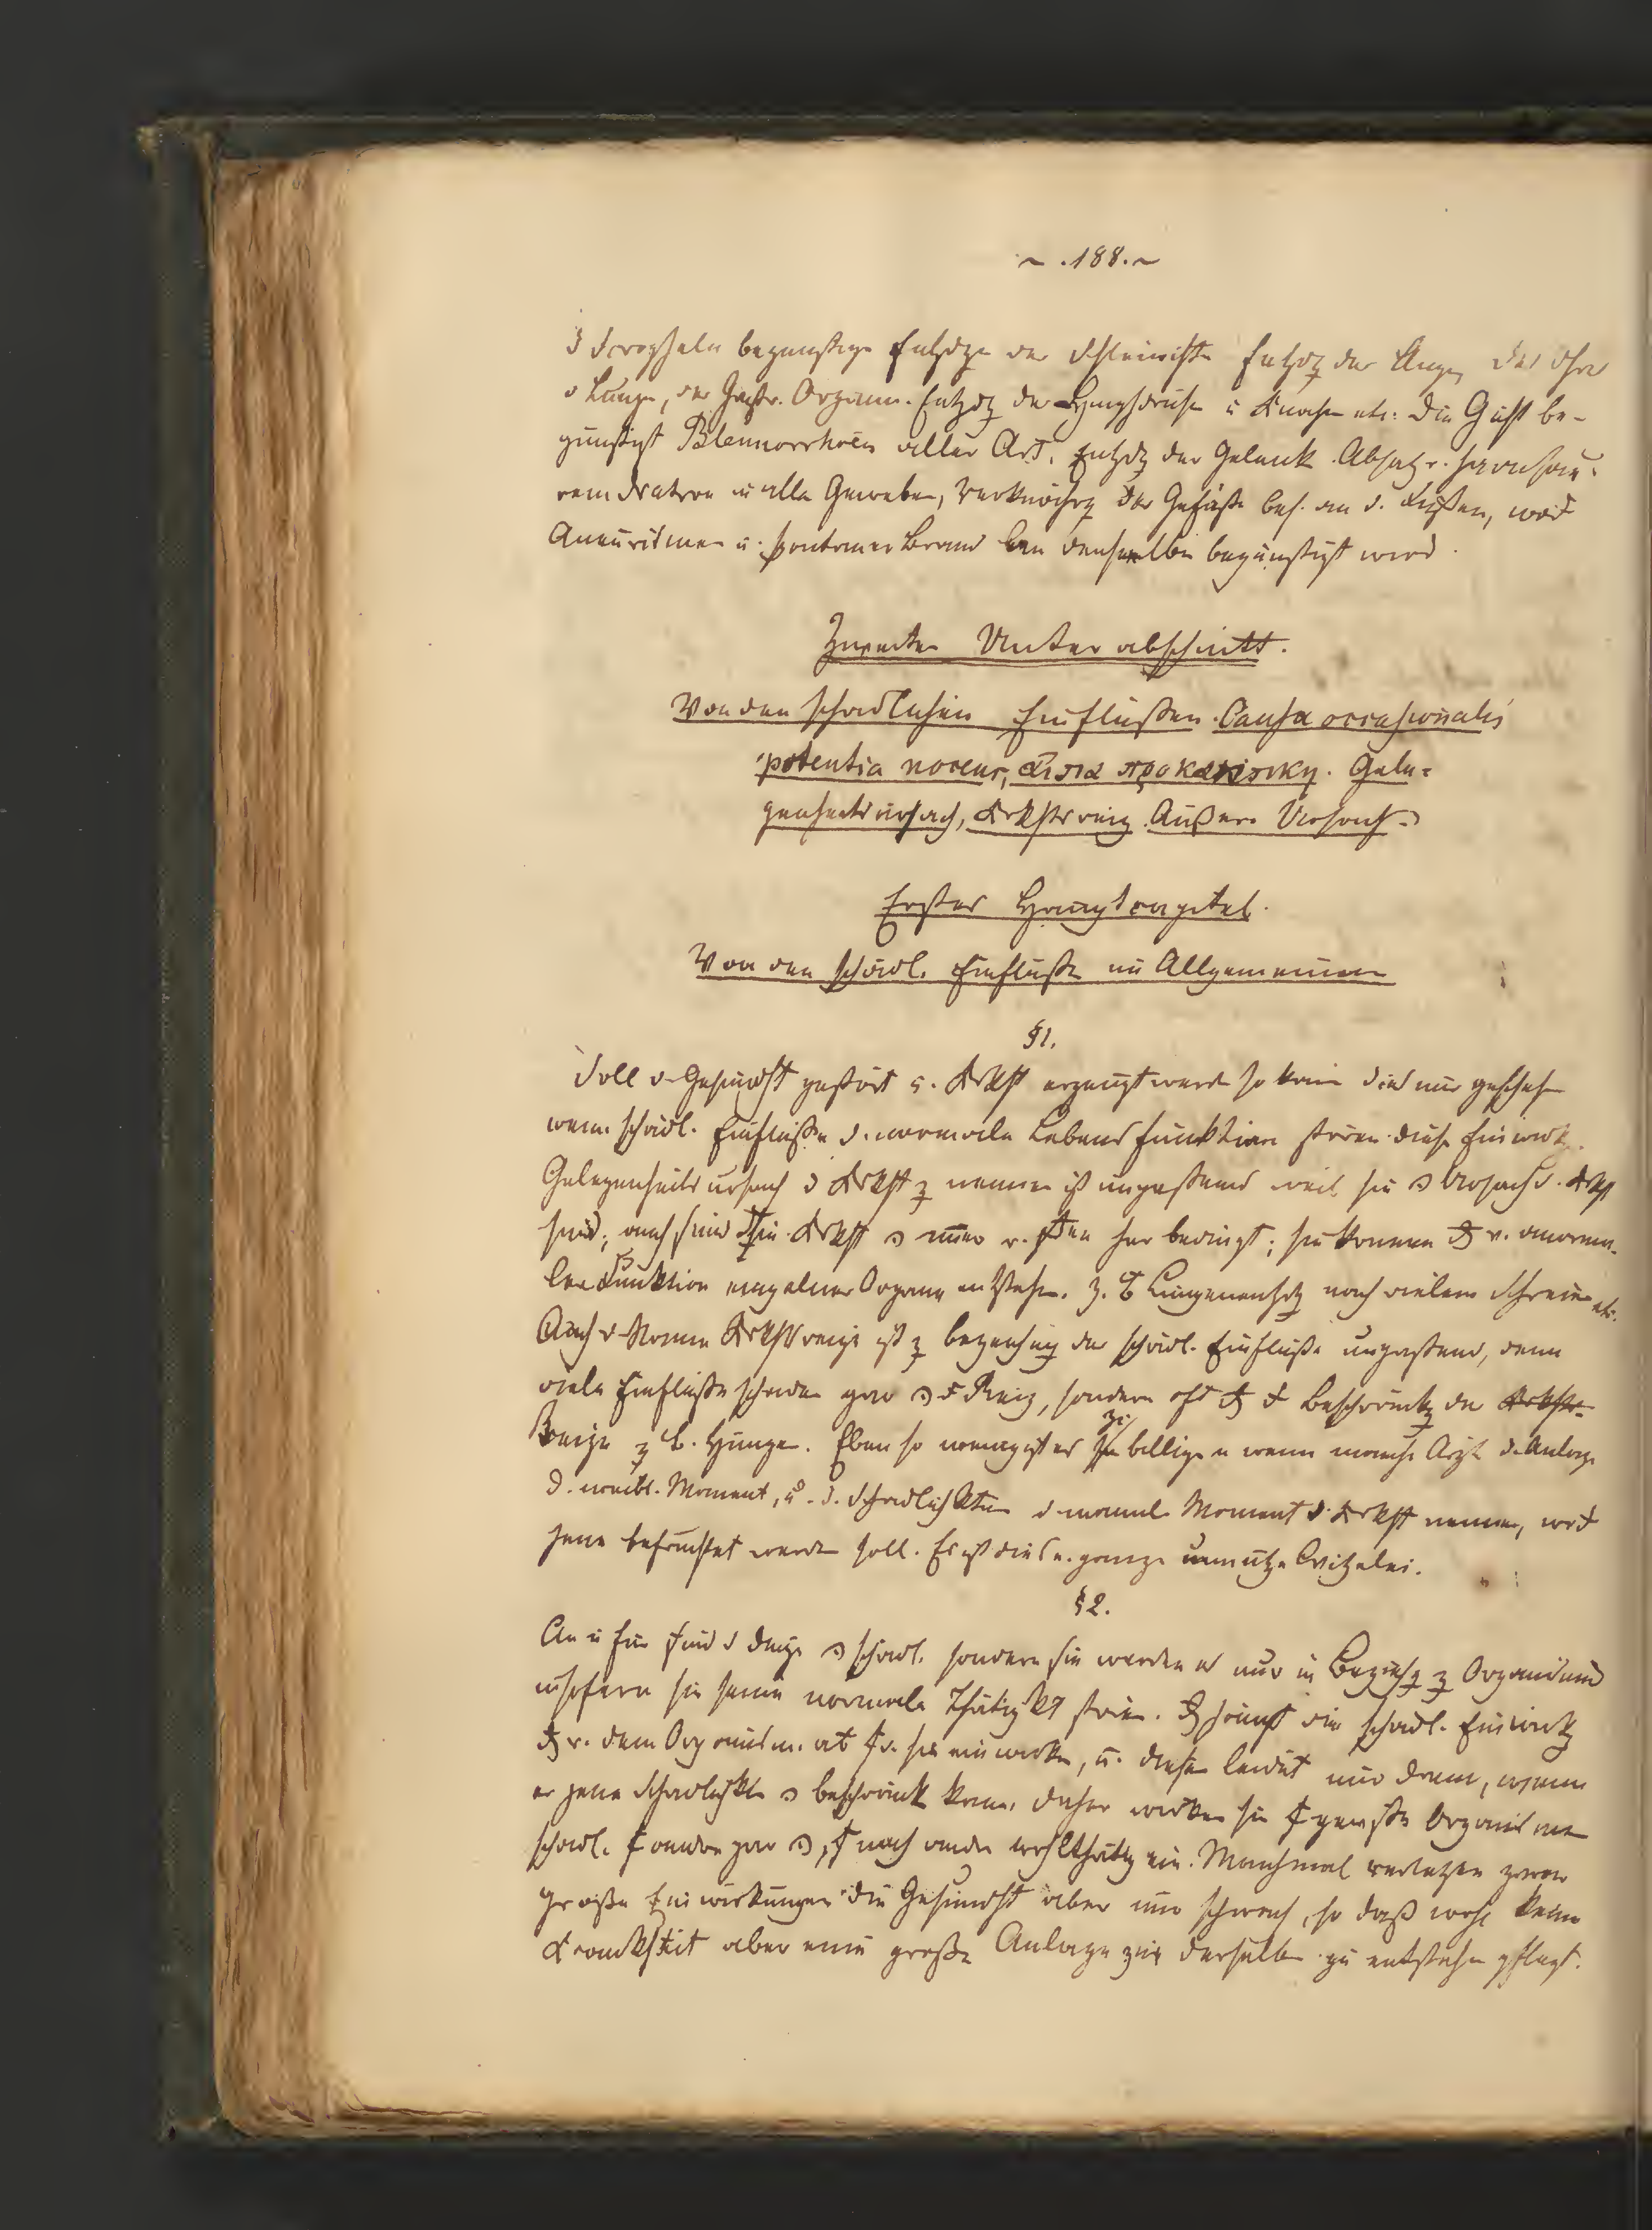 ~ . 188. ~
d Scropheln begünstige Entzdge der Schleimhte Entzdg der Augen, des Ohres
d Lunge, der Gastr. Organe. Entzdg der Lymphdrüse u Knoche etc: Die Gicht be-
günstigt Blennorrhoen aller Art, Entzdg der Gelenk Absatz v. harnsau-
rem Natron in alle Geweben, Verknöchrg der Gefäße bes. an d. Füßen,
Aneurismen u. spontaner Brand an denselben begünstigt wird.
Zweiter Unterabschnitt.
Von den schädlichen Einflüßen. Causa occasionalis
potentia nocens, αιτια προκαταρκτικη. Gele-
genheitsursach, Krkhtsreiz. Äußere Ursach.
Erstes Hauptcapitel.
Von den schädl. Einflüße im Allgemeinen
§1.
Soll d Gesundht gestört u. Krkht erzeugt werde so kann dies nur gescheh
wenn schädl. Einflüße d. normale Lebensfunktion stören. diese Einwirkg.
Gelegenheitsursach d Krkht z nennen ist unpassend weil sie Ursach d. Krkht
sind; auch sind Krkht immer v. her bedingt; sie können v. anorma-
len Funktion einzelner Organe entstehe. z. B Lungenentzdg nach vielem Schreien etc.
Auch d Namen Krkhtsreize ist z bezeichng der schädl. Einflüße unpassend, denn
viele Einflüße schaden gar Reiz, sondern oft Beschränkg der Krkhts-
Reize z B. Hunger. Eben so wenig ist es zu billigen wenn manche Arzt d. Anlage
d. weibl. Moment, u. d. Schädlichkten d männl Moment d. Krkht nennen,
jene befruchtet werde soll. Es ist dies e. ganze unnütze Witzelei.
§2.
An u für sind d Dinge schädl. sondern sie werden es nur in Beziehg z Organismus
insofern sie seine normale Thätigkt stören. hängt die schädl. Einwirkg
v. dem Organism. ab sie einwirke, u. dieser leidet nur dann, wenn
er jene Schädlichkte beschränk kann. daher wirken sie gewiße Organismen
schädl. andere gar, noch andre wohlthätig ein. Manchmal verletzen zwar
große Einwirkungen die Gesundht aber nur schwach, so daß wohl keine
Krankheit aber eine große Anlage zur derselbe zu entstehen pflegt.